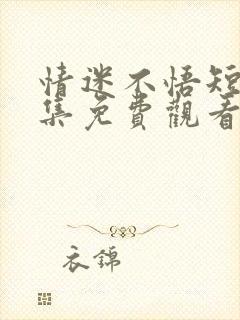 情迷不悟短
集免費觀看
衣錦